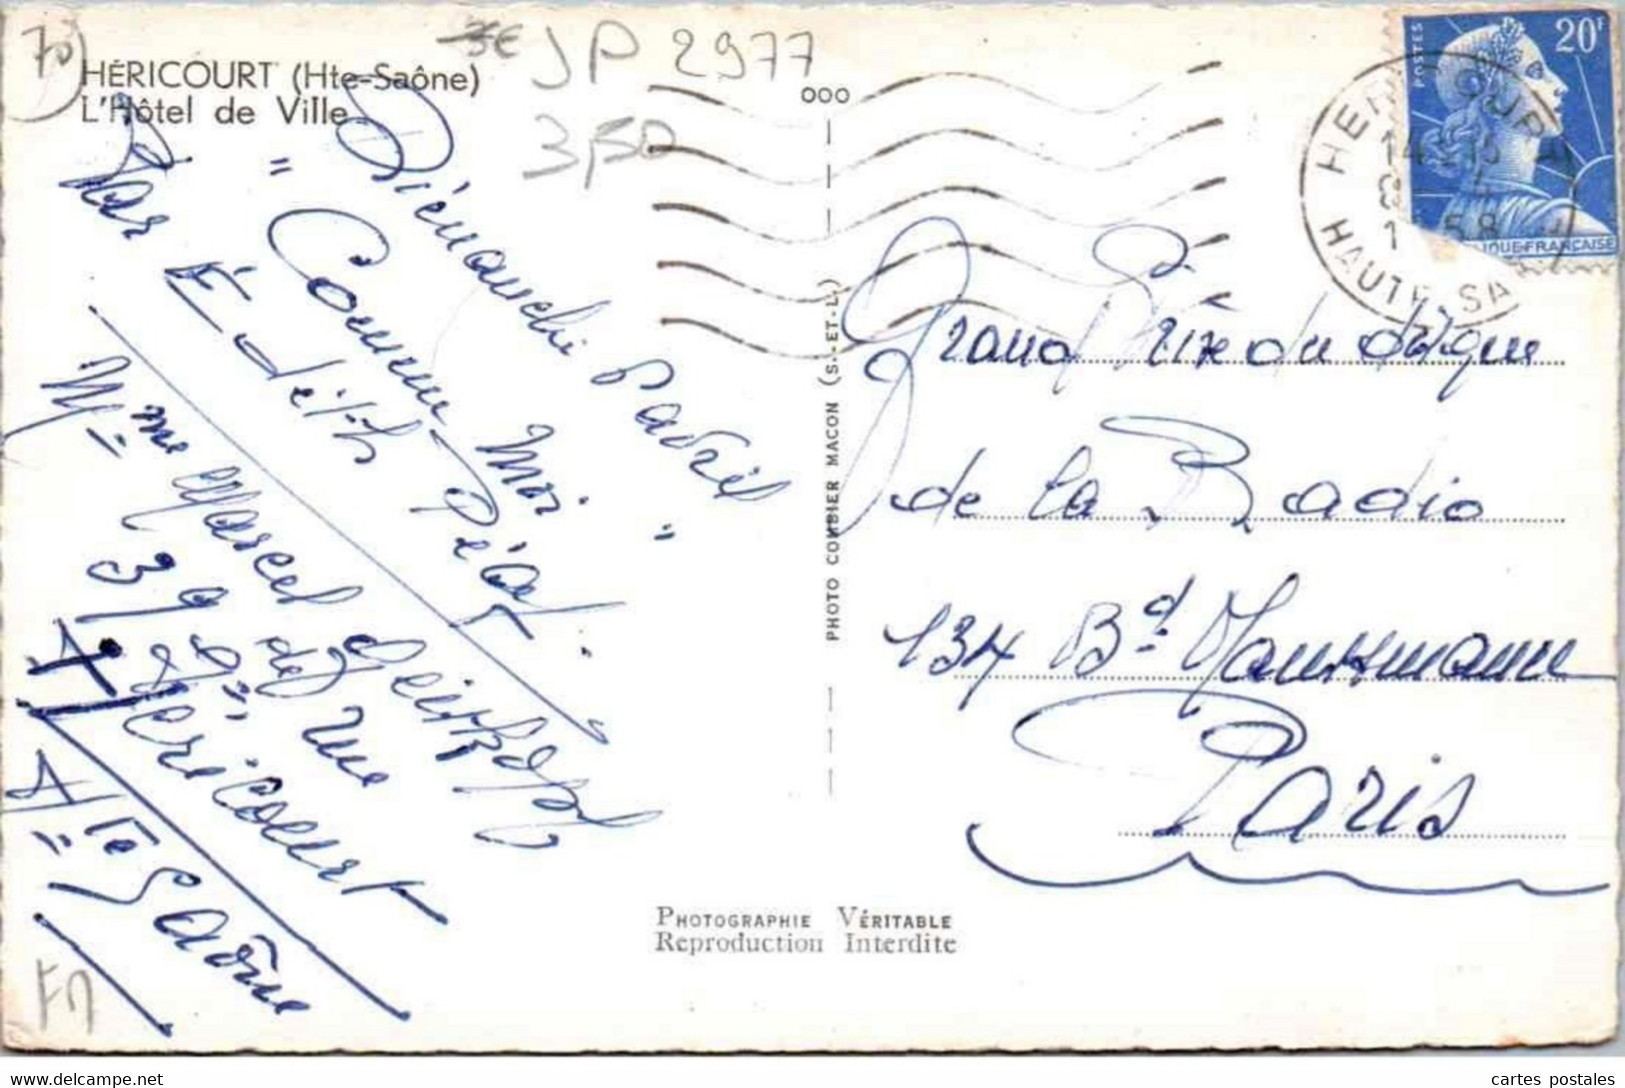 70
HÉRICOURT (Hte-Saône)
L'Hôtel de Ville
3€ JP 2977
3,50
000
POSTES
20F
HÉRICOURT
14 H 15
1958
HAUTE-SAÔNE
FRANÇAISE
Dimanche Padril
" Comme Moi "
Par Édith Piaf.
Mme Marcel
39 de rue
Héricourt
Hte Saône
FM
PHOTO COMBIER MACON (S.-ET-L.)
Grand Prix du disque
de la Radio
134 Bd Haussmann
Paris
PHOTOGRAPHIE VÉRITABLE
Reproduction Interdite
delcampe.net
cartes postales